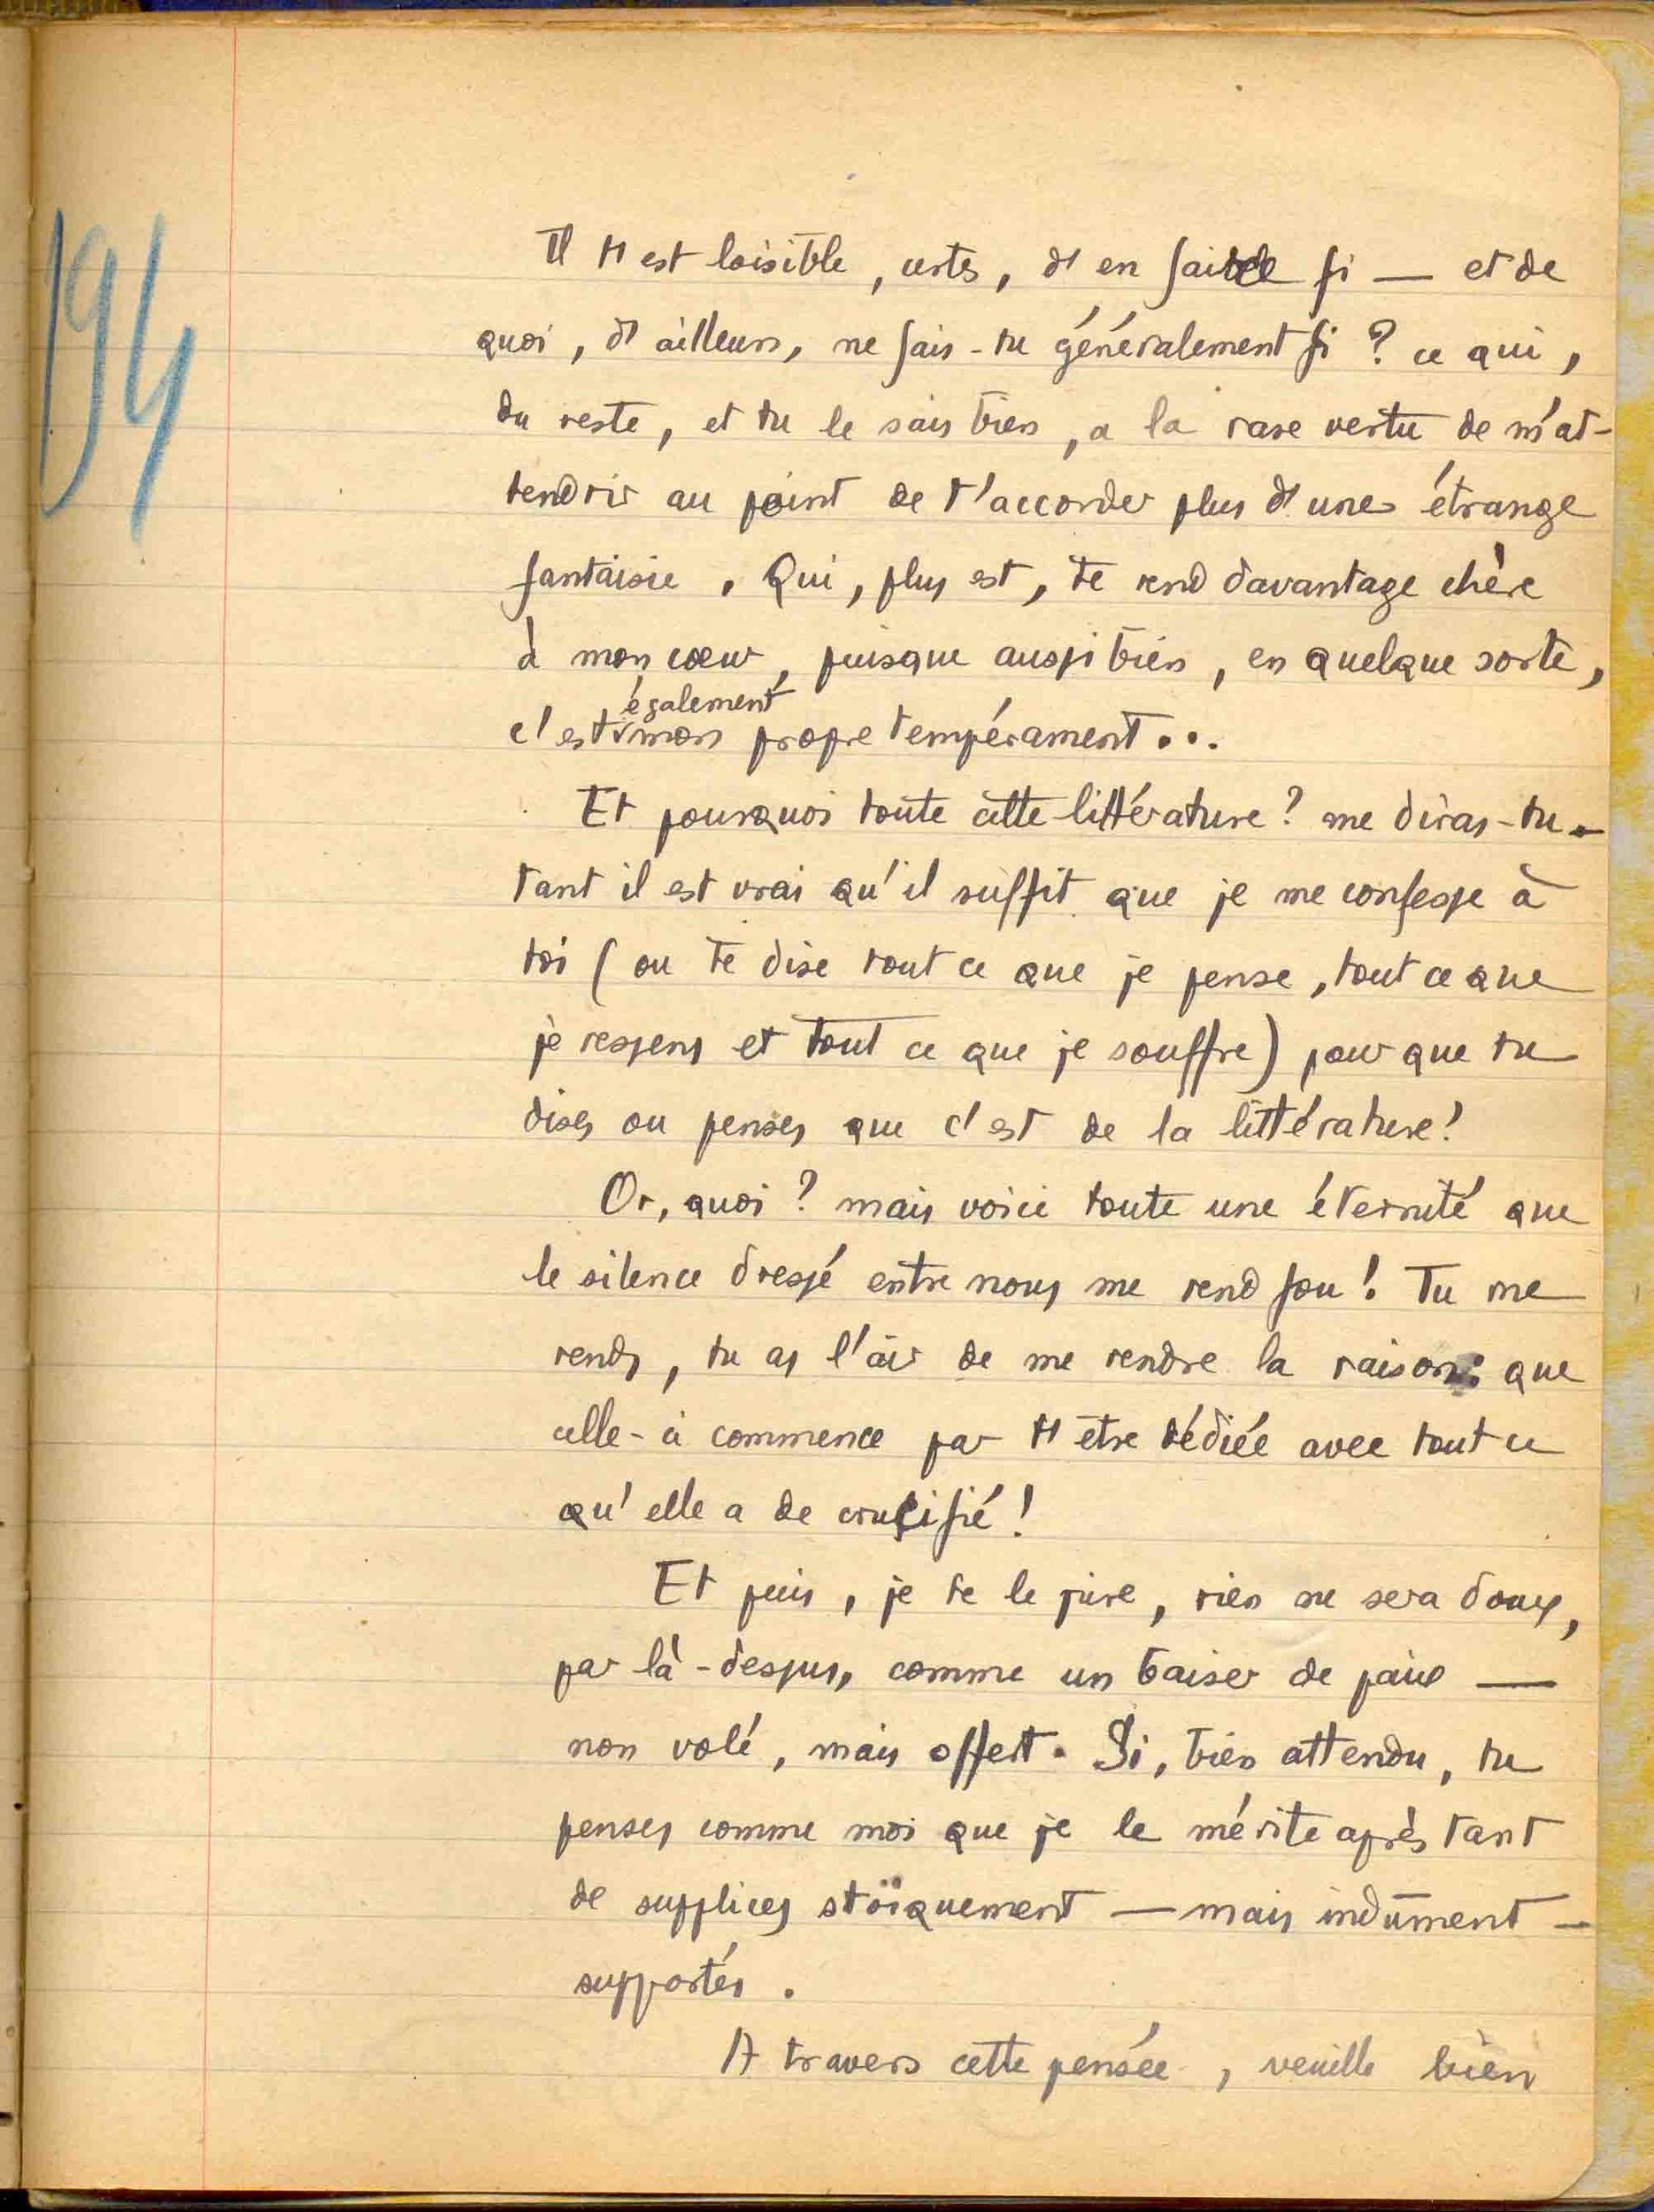 194
Il t'est loisible, certes, d'en faire fi — et de
quoi, d'ailleurs, ne fais-tu généralement fi ? ce qui,
du reste, et tu le sais bien, a la rare vertu de m'at-
tendrir au point de t'accorder plus d'une étrange
fantaisie. Qui, plus est, te rend davantage chère
à mon cœur, puisque aussi bien, en quelque sorte,
également
c'est mon propre tempérament...
Et pourquoi toute cette littérature ? me diras-tu -
tant il est vrai qu'il suffit que je me confesse à
toi (ou te dise tout ce que je pense, tout ce que
je ressens et tout ce que je souffre) pour que tu
dises ou penses que c'est de la littérature !
Or, quoi ? mais voici toute une éternité que
le silence dressé entre nous me rend fou ! Tu me
rends, tu as l'air de me rendre la raison : que
celle-ci commence par t'être dédiée avec tout ce
qu'elle a de crucifié !
Et puis, je te le jure, rien ne sera doux,
par là-dessus, comme un baiser de paix —
non volé, mais offert. Si, bien attendu, tu
penses comme moi que je le mérite après tant
de supplices stoïquement — mais indûment —
supportés.
A travers cette pensée, veuille bien